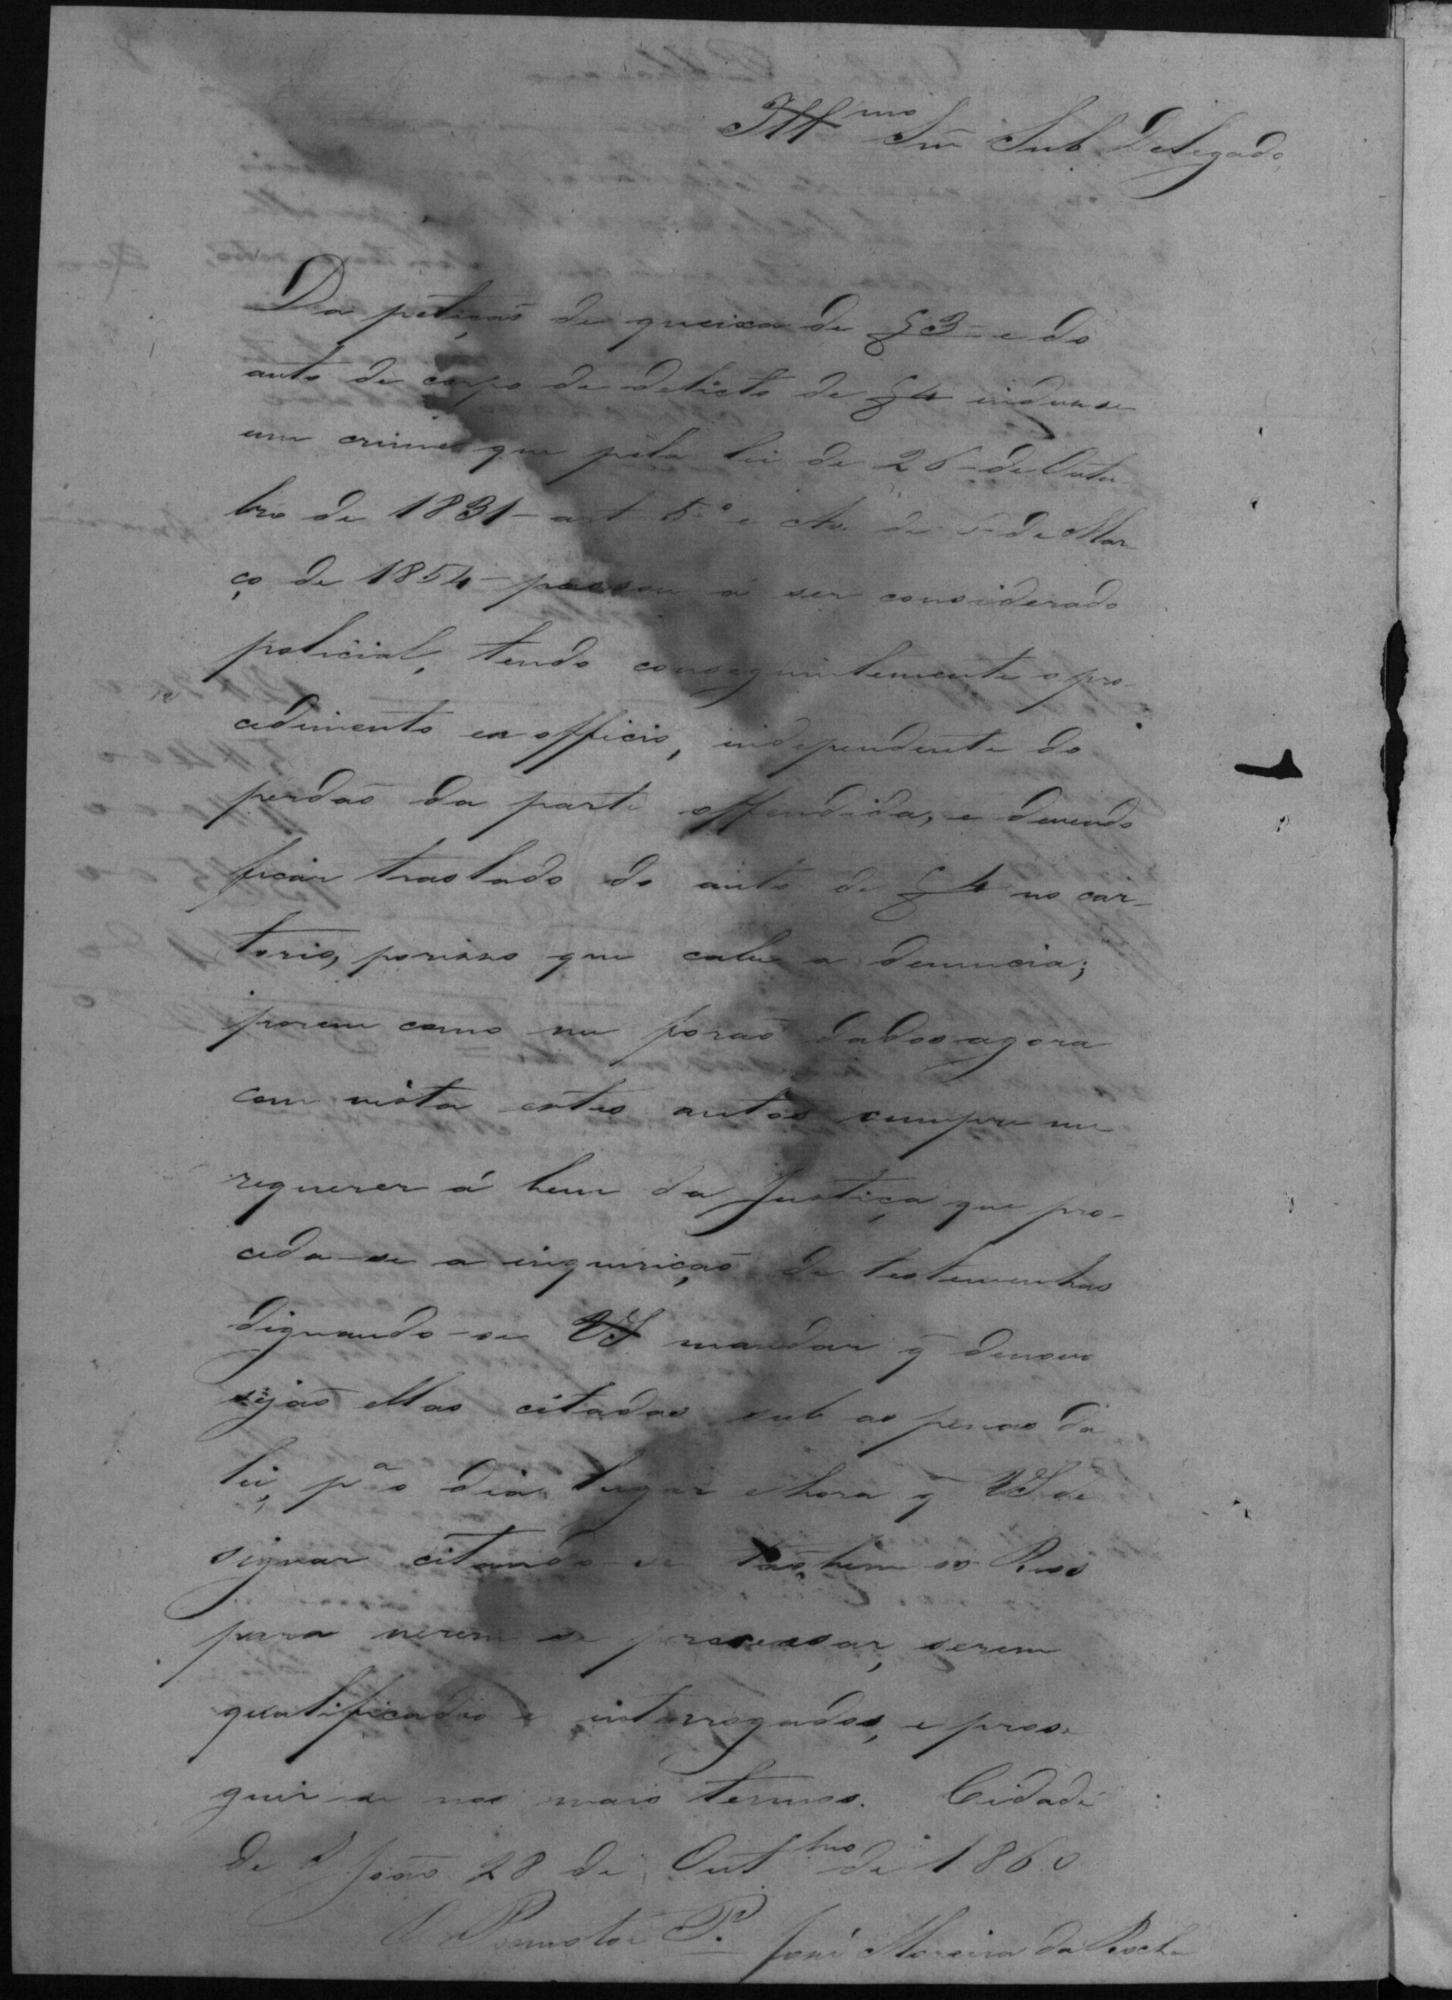 Ill.mo Snr. Sub Delegado
Da petiçaõ de queixa de f 3 - e do
auto de corpo de delicto de f 4 induz se
um crime que pela lei de 26 - de Outu
bro de 1831 - art 5.º e Av. de 5 de Mar
ço de 1854 - passou á ser considerado
policial, tendo conseguintemente o pro-
cedimento ex officio, independente do
perdaõ da parte offendida, e devendo
ficar traslado do auto de f 4 no car-
torio, porisso que cabe a denuncia;
porem como me foraõ dados agora
com vista estes autos cumpre me
requerer á bem da Justiça que pro-
ceda-se a inquiriçaõ de testemunhas
dignando-se VS. mandar q̃ denovo
sejaõ ellas citadas sub as penas da
lei, p.ª o dia lugar e hora q̃ VS. de
signar citando-se taõbem os Reos
para verem se processar, serem
qualificados e interrogados, e prose
guir-se nos mais termos. Cidade
de S João 28 de Out.bro de 1860
O Promotor P. José Moreira da Rocha